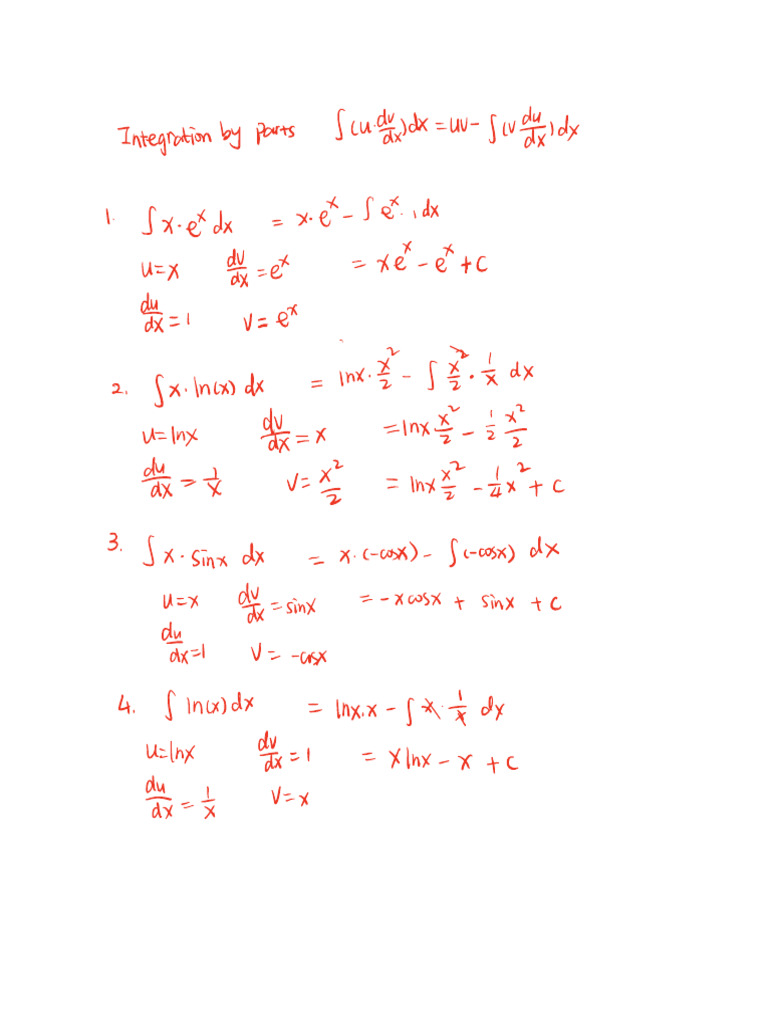 Integration by parts ∫(u·dv/dx)dx = uv - ∫(v du/dx)dx
1. ∫x·eˣ dx = x·eˣ - ∫eˣ·1 dx
u=x dv/dx = eˣ = xeˣ - eˣ + c
du/dx = 1 v = eˣ
2. ∫x·ln(x) dx = lnx·x²/2 - ∫x²/2·1/x dx
u=lnx dv/dx = x = lnx x²/2 - 1/2 x²/2
du/dx = 1/x v = x²/2 = lnx x²/2 - 1/4 x² + c
3. ∫x·sinx dx = x·(-cosx) - ∫(-cosx) dx
u=x dv/dx = sinx = -xcosx + sinx + c
du/dx = 1 v = -cosx
4. ∫ln(x)dx = lnx·x - ∫x·1/x dx
u=lnx dv/dx = 1 = xlnx - x + c
du/dx = 1/x v=x